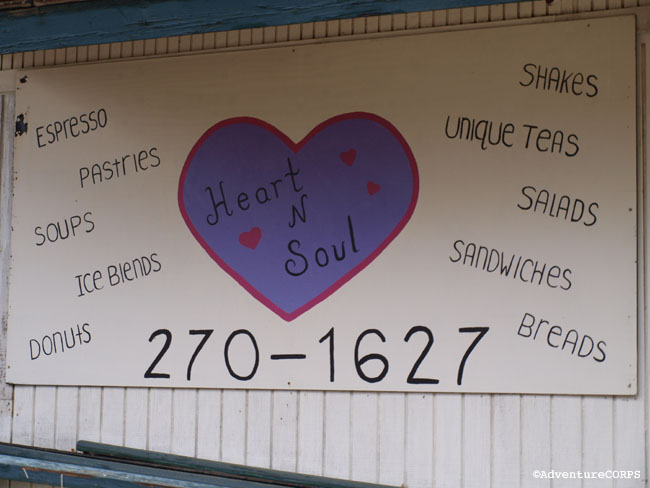 Espresso
Pastries
Soups
Ice Blends
Donuts
Heart
N
Soul
Shakes
Unique Teas
Salads
Sandwiches
Breads
270-1627
©AdventureCORPS